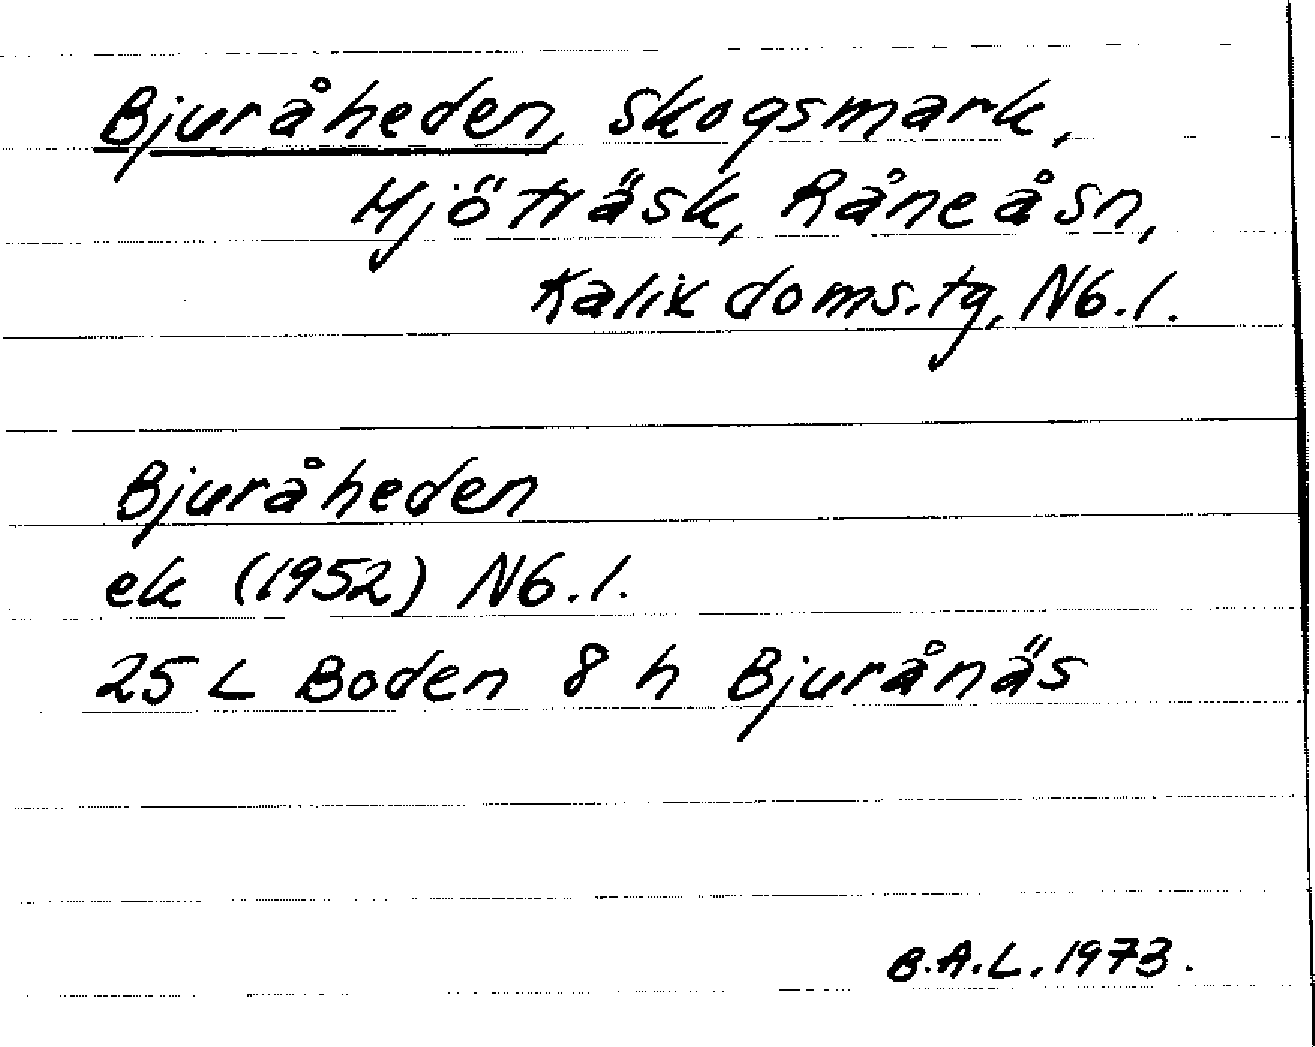 Bjuråheden, skogsmark,
Mjöträsk, Råneå sn,
Kalix doms.tg, Nb.l.
Bjuråheden
ek (1952) Nb.l.
25 L Boden 8 h Bjurånäs
B.A.L. 1973.